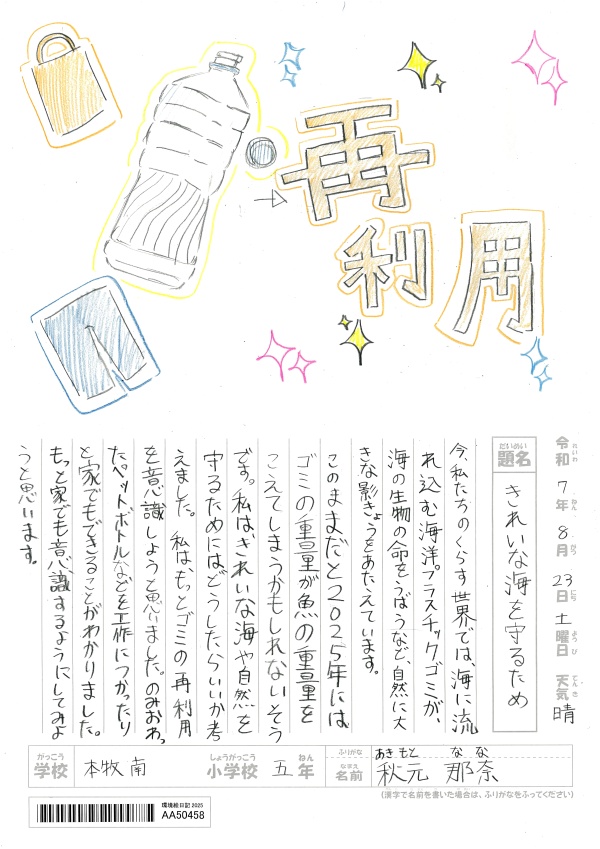 再
利用
令和7年8月23日土曜日 天気 晴
れいわ ねん がつ にち ようび てんき
だいめい
題名
きれいな海を守るため
今、私たちのくらす世界では、海に流
れ込む海洋プラスチックゴミが、
海の生物の命をうばうなど、自然に大
きな影きょうをあたえています。
このままだと2025年には
ゴミの重量が魚の重量を
こえてしまうかもしれないそう
です。私は、きれいな海や自然を
守るためにはどうしたらいいか考
えました。私は、もっとゴミの再利用
を意識しようと思いました。のみおわっ
たペットボトルなどを工作につかったり
と家でもできることがわかりました。
もっと家でも意識するようにしてみよ
うと思います。
がっこう
学校
本牧南
しょうがっこう
小学校
五
ねん
年
ふりがな
あきもと なな
なまえ
名前
秋元 那奈
(漢字で名前を書いた場合は、ふりがなをふってください)
環境絵日記 2025
AA50458